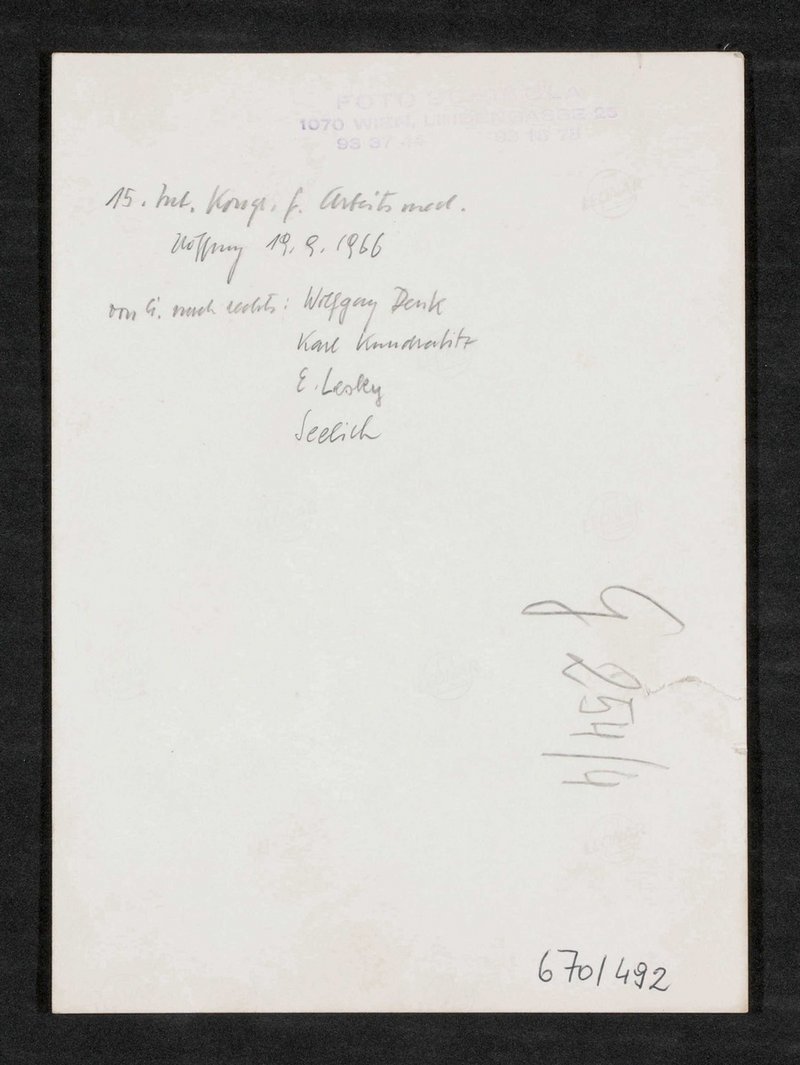 FOTO
1070 WIEN, LINDENGASSE 25
93 37 44 93 16 73
15. Int. Kongr. f. Arbeitsmed.
Hoffburg 19. 9. 1966
von li. nach rechts: Wolfgang Denk
Karl Kundratitz
E. Lesky
Seelich
G 254/4
670/492